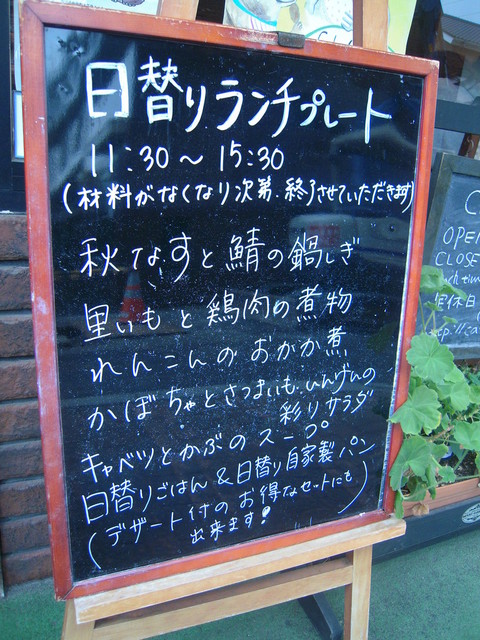 日替りランチプレート
11:30～15:30
(材料がなくなり次第、終了させていただきます)
秋なすと鯖の鍋しぎ
里いもと鶏肉の煮物
れんこんのおかか煮
かぼちゃとさつまいも、いんげんの
彩りサラダ
キャベツとかぶのスープ
日替りごはん&日替り自家製パン
(デザート付のお得なセットにも
出来ます!)
OPEN
CLOSE